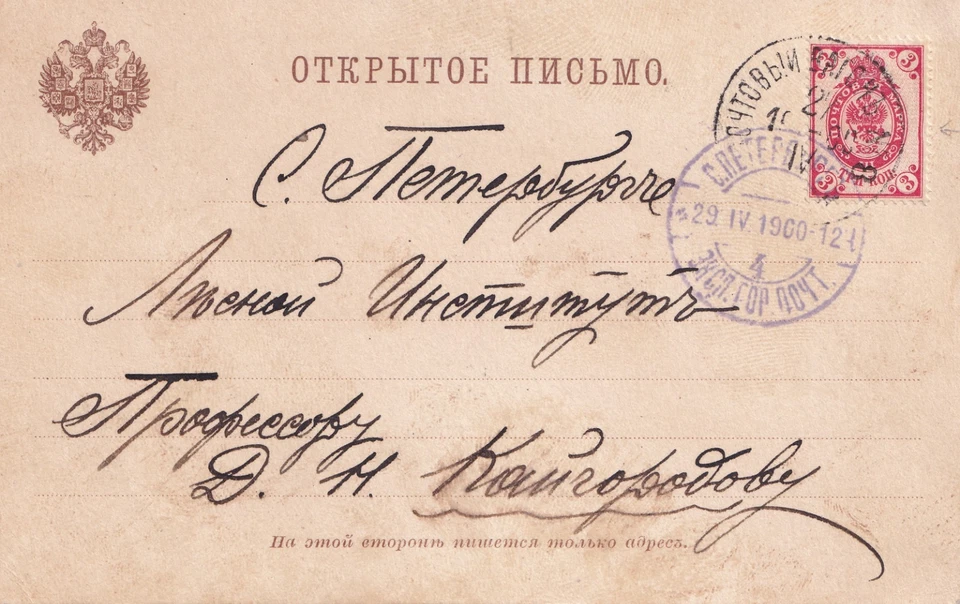 ОТКРЫТОЕ ПИСЬМО.
3 3
ПОЧТОВАЯ МАРКА
3 ТРИ КОП. 3
ПОЧТОВЫЙ
IV
С.ПЕТЕРБУРГ
29 IV 1900-12
4
ЭКСП.ГОР.ПОЧТ.
С. Петербургъ
Лѣсной Институтъ
Профессору
Д. Н. Кайгородову
На этой сторонѣ пишется только адресъ.